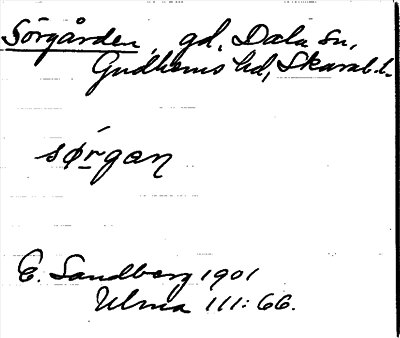 Sörgården, gd, Dala sn,
Gudhems hd, Skarab. l.
sørgan
E. Sandberg 1901
Ulma 111: 66.